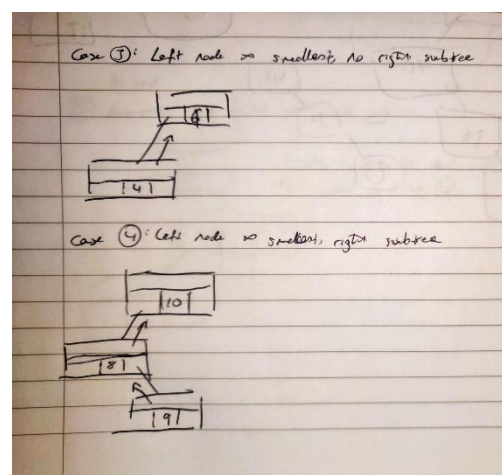 Case ③: Left node is smallest, no right subtree
6
4
Case ④: Left node is smallest, right subtree
10
8
9